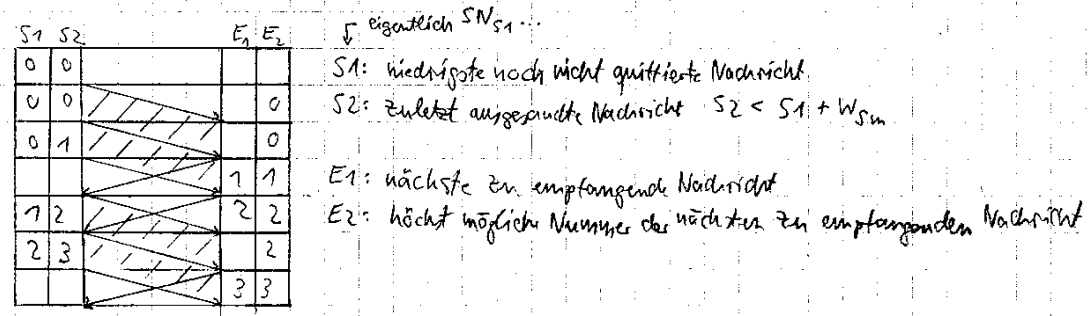 S1 S2 E1 E2 eigentlich SN_S1 ...
0 0 S1: niedrigste noch nicht quittierte Nachricht
0 0 0 S2: zuletzt ausgesandte Nachricht S2 < S1 + W_Sm
0 1 0
1 1 E1: nächste zu empfangende Nachricht
1 2 2 2 E2: höchst mögliche Nummer der nächsten zu empfangenden Nachricht
2 3 2
3 3